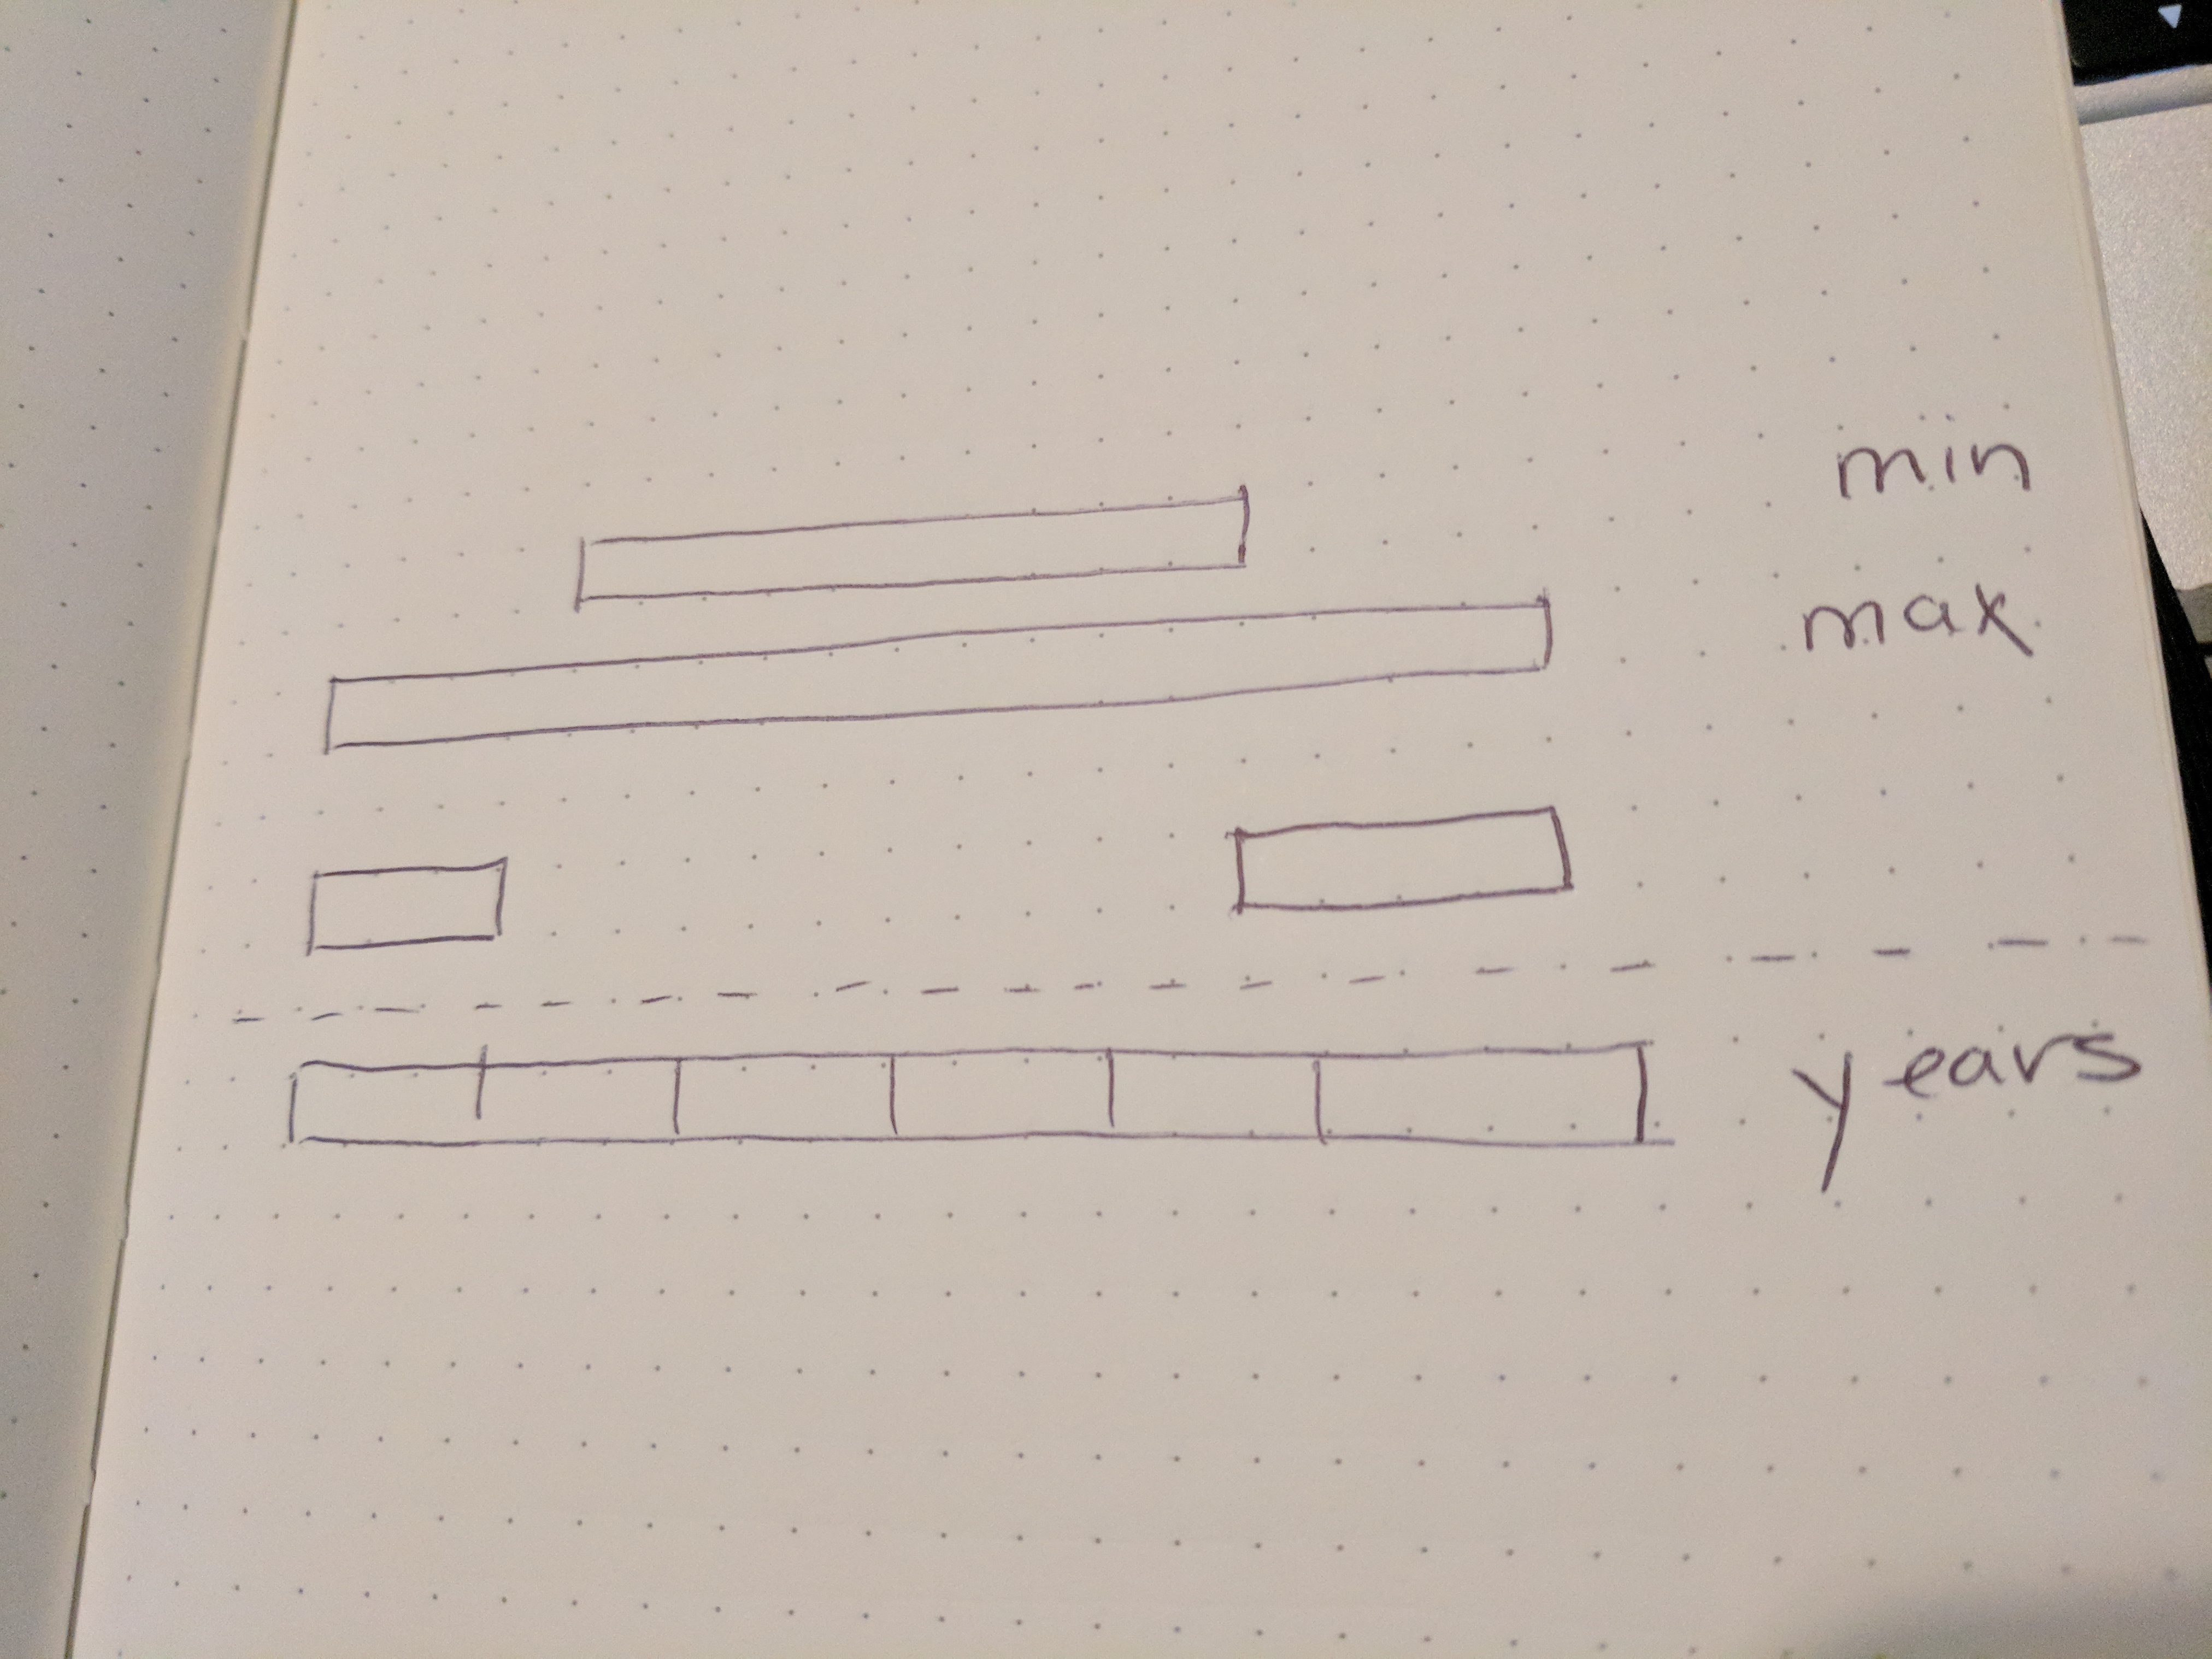 min
max
years